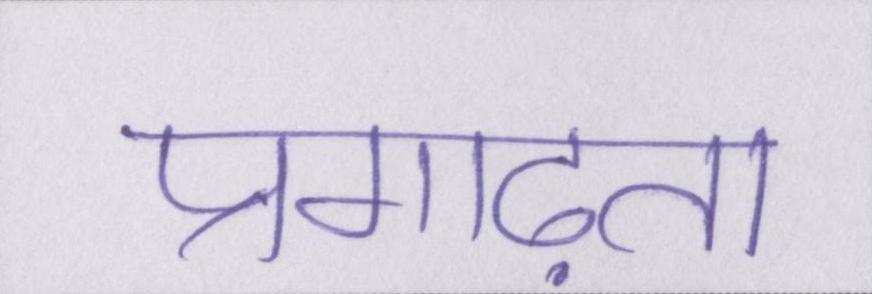 प्रगाढ़ता